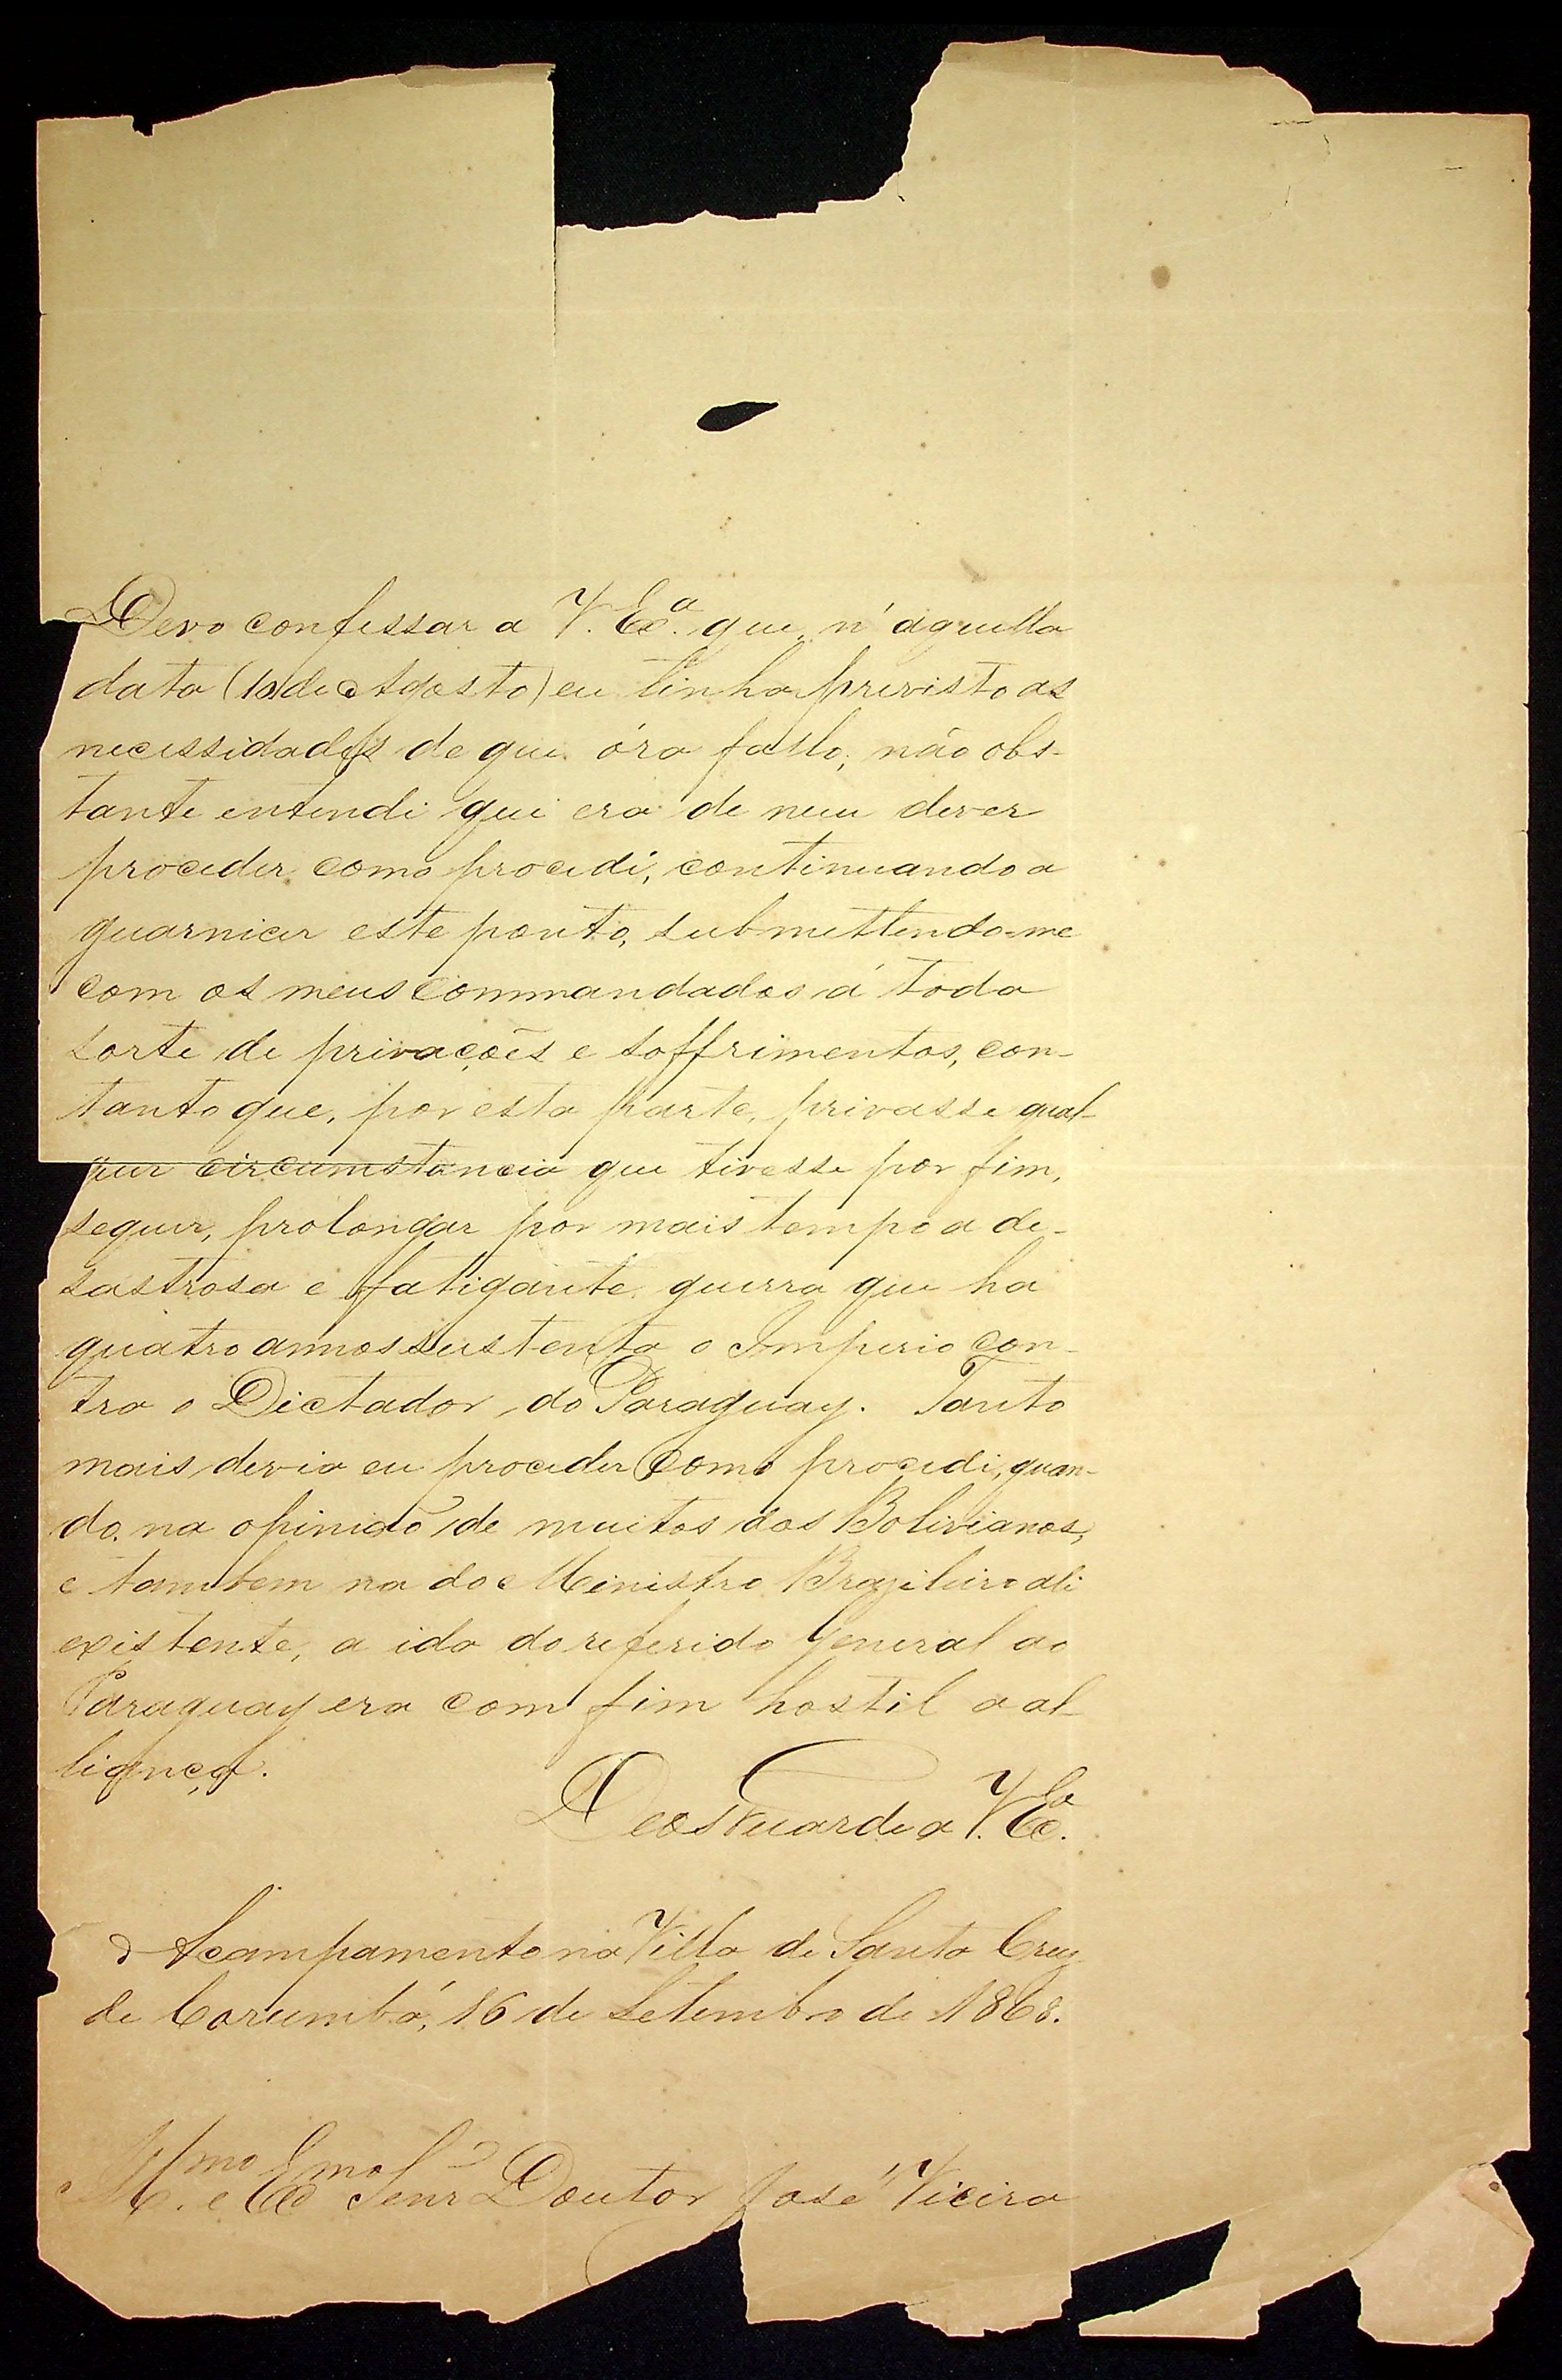 Devo confessar a V. Ex.ª que n'aquella
data (10 de Agosto) eu tinha previsto as
necessidades de que óra fallo; não obs-
tante entendi que era de meu dever
proceder como procedi, continuando a
guarnicer este ponto, submettendo-me
com os meus commandados á toda
sorte de privações e soffrimentos, con-
tanto que, por esta parte, privasse qual-
quer circumstancia que tivesse por fim,
sequer, prolongar por mais tempo a de-
sastrosa e fatigante guerra que ha
quatro annos sustenta o Imperio con-
tra o Dictador do Paraguay. Tanto
mais devia eu proceder como procedi, quan-
do na opinião de muitos dos Bolivianos,
e tambem na do Ministro Brazileiro ali
existente, a ida do referido General ao
Paraguay era com fim hostil a al-
liança.
Deos Guarde a V. Ex.ª
Acampamento na Villa de Santa Cruz
de Corumbá, 16 de Setembro de 1868.
Ill.mo e Ex.mo Senr Doutor José Vieira